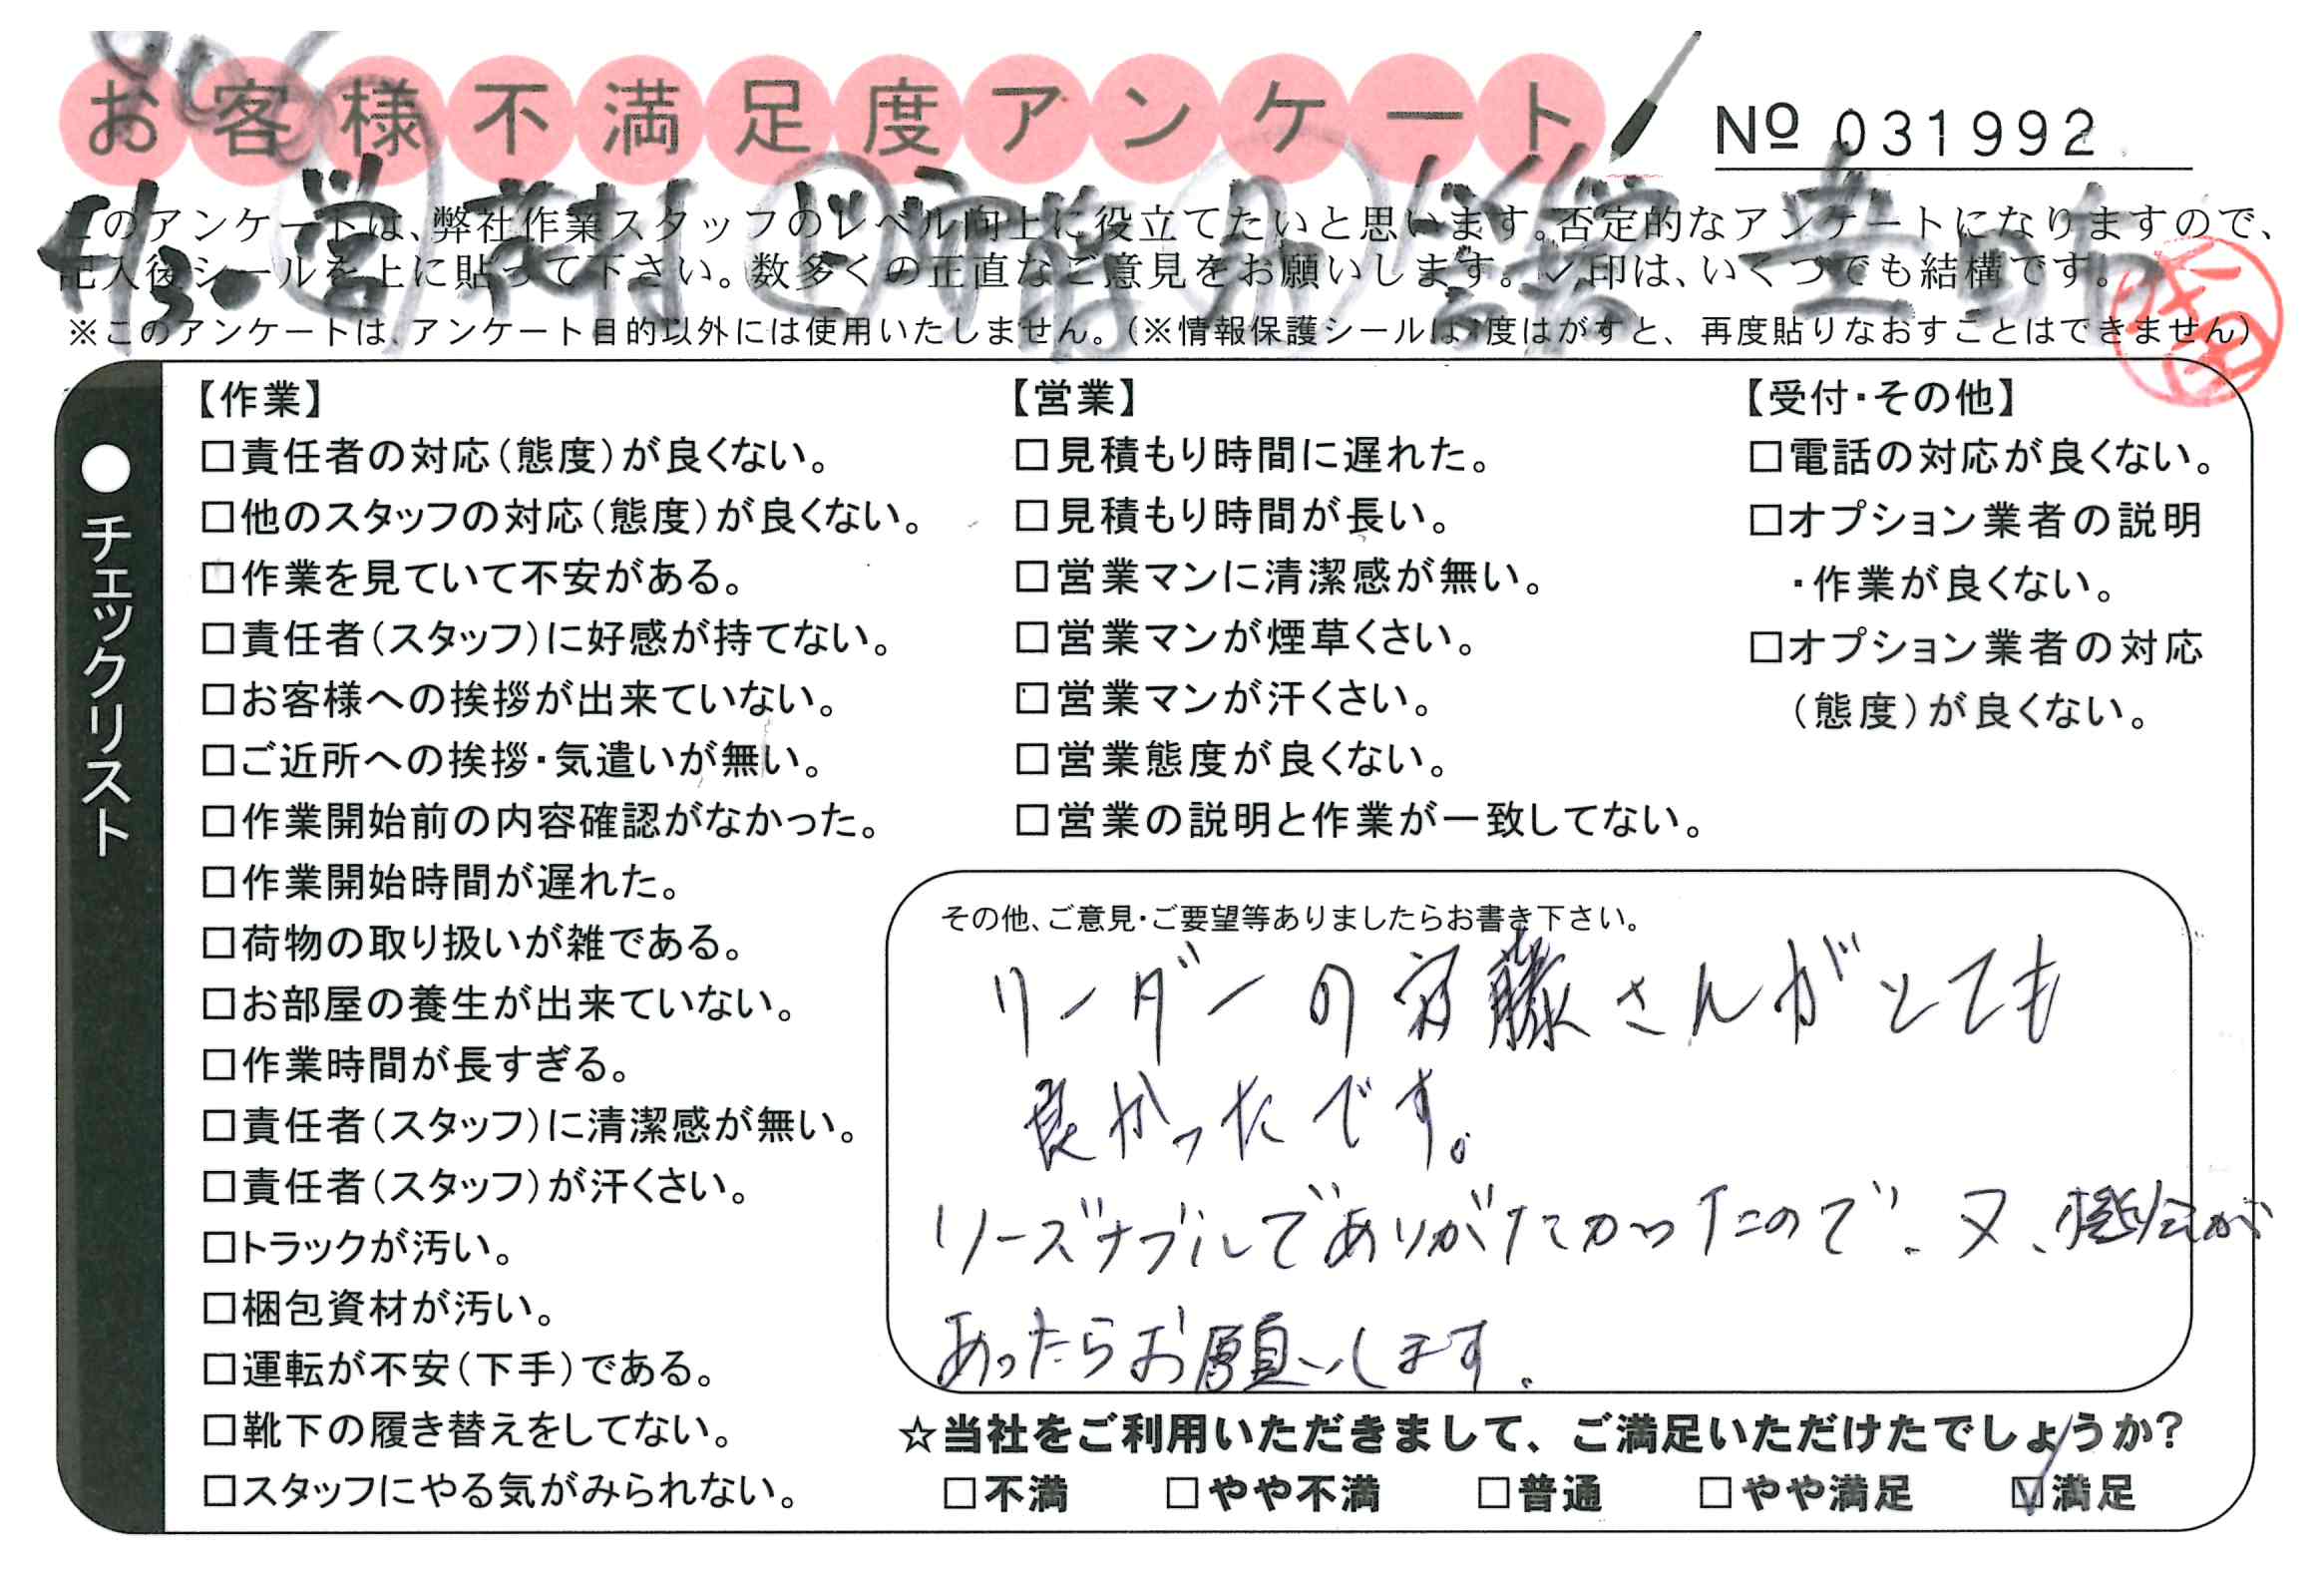 お客様不満足度アンケート
Nº 031992
このアンケートは、弊社作業スタッフのレベル向上に役立てたいと思います。否定的なアンケートになりますので、
記入後シールを上に貼って下さい。数多くの正直なご意見をお願いします。✓印は、いくつでも結構です。
※このアンケートは、アンケート目的以外には使用いたしません。(※情報保護シールは1度はがすと、再度貼りなおすことはできません)
●チェックリスト
【作業】
□責任者の対応(態度)が良くない。
□他のスタッフの対応(態度)が良くない。
□作業を見ていて不安がある。
□責任者(スタッフ)に好感が持てない。
□お客様への挨拶が出来ていない。
□ご近所への挨拶・気遣いが無い。
□作業開始前の内容確認がなかった。
□作業開始時間が遅れた。
□荷物の取り扱いが雑である。
□お部屋の養生が出来ていない。
□作業時間が長すぎる。
□責任者(スタッフ)に清潔感が無い。
□責任者(スタッフ)が汗くさい。
□トラックが汚い。
□梱包資材が汚い。
□運転が不安(下手)である。
□靴下の履き替えをしてない。
□スタッフにやる気がみられない。
【営業】
□見積もり時間に遅れた。
□見積もり時間が長い。
□営業マンに清潔感が無い。
□営業マンが煙草くさい。
□営業マンが汗くさい。
□営業態度が良くない。
□営業の説明と作業が一致してない。
【受付・その他】
□電話の対応が良くない。
□オプション業者の説明
・作業が良くない。
□オプション業者の対応
(態度)が良くない。
その他、ご意見・ご要望等ありましたらお書き下さい。
リーダーの斉藤さんがとても
良かったです。
リーズナブルでありがたかったので、又、機会が
あったらお願いします。
☆当社をご利用いただきまして、ご満足いただけたでしょうか?
□不満 □やや不満 □普通 □やや満足 ☑満足